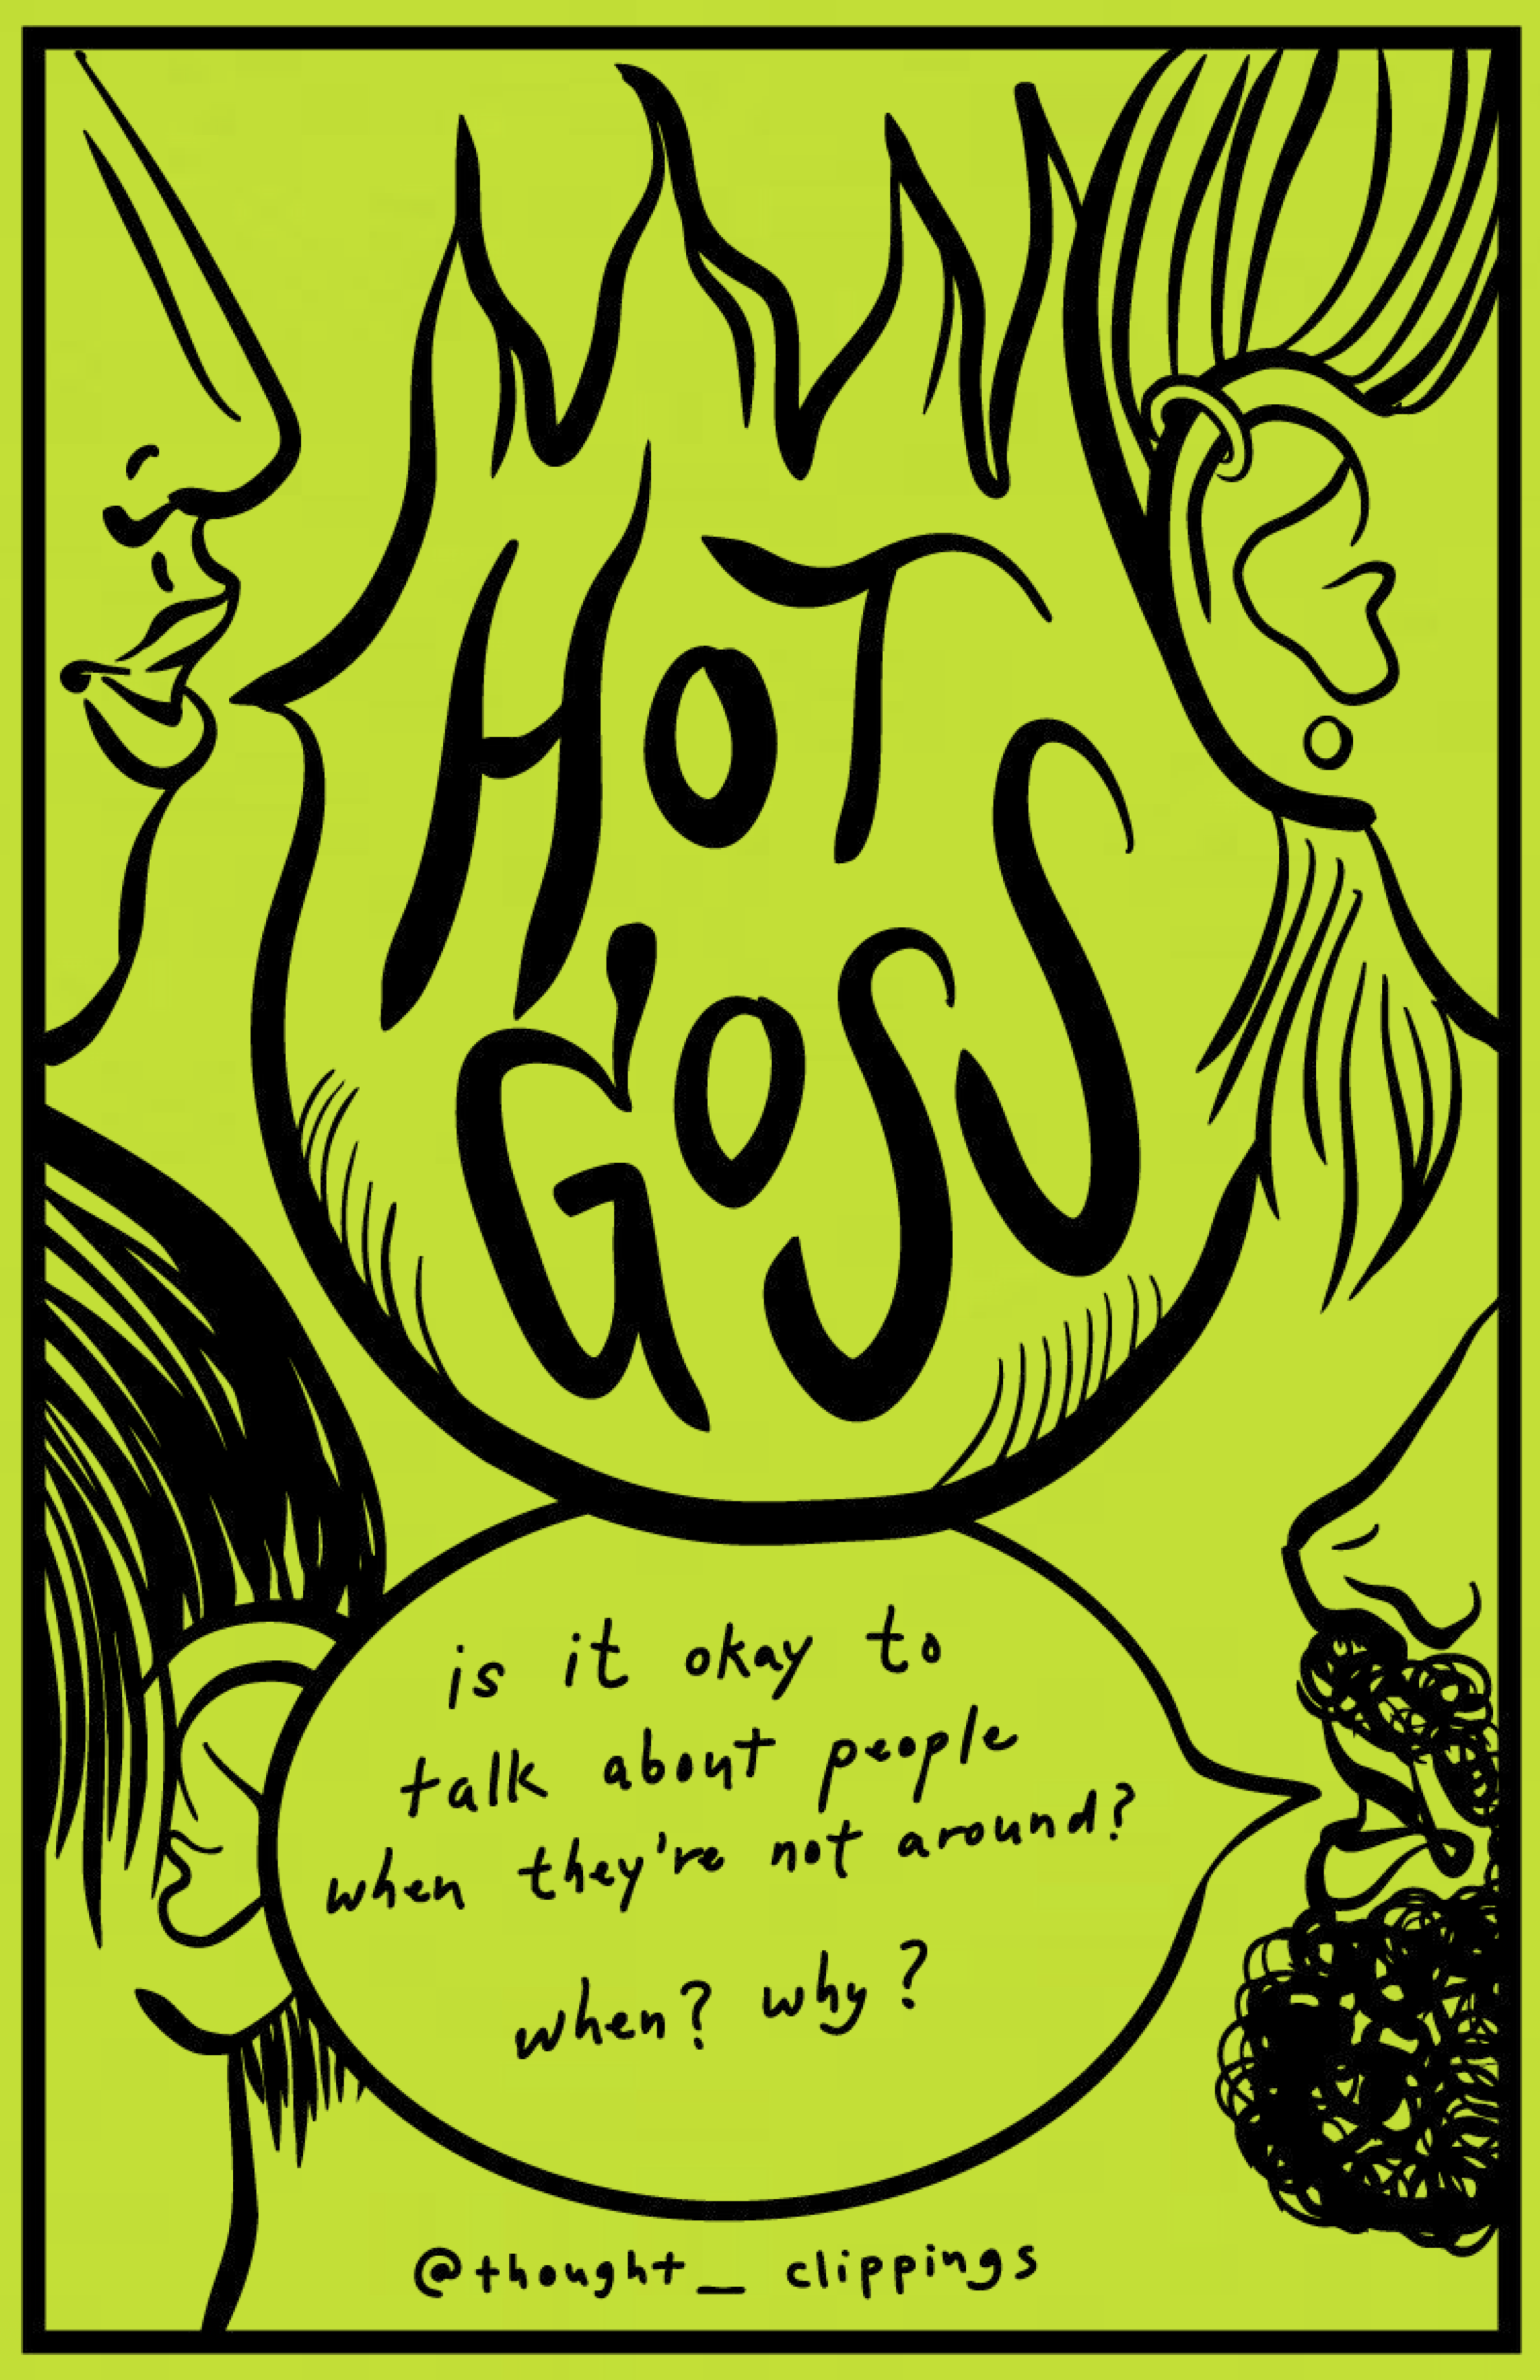 HOT
GOSS
is it okay to
talk about people
when they're not around?
when? why?
@thought_clippings